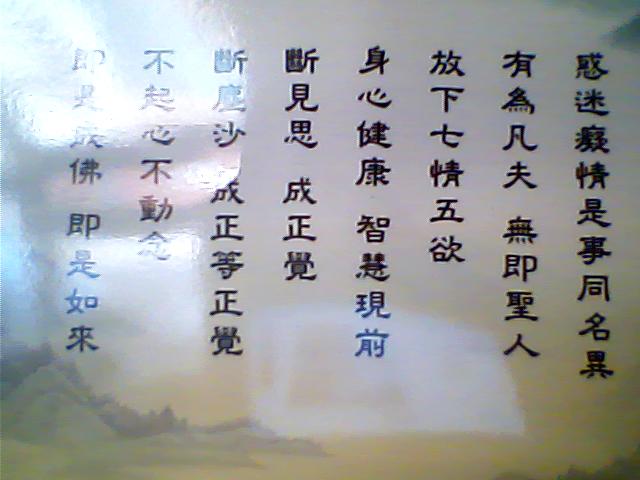 惑迷癡情是事同名異
有為凡夫 無即聖人
放下七情五欲
身心健康 智慧現前
斷見思 成正覺
斷塵沙 成正等正覺
不起心不動念
即是成佛 即是如來